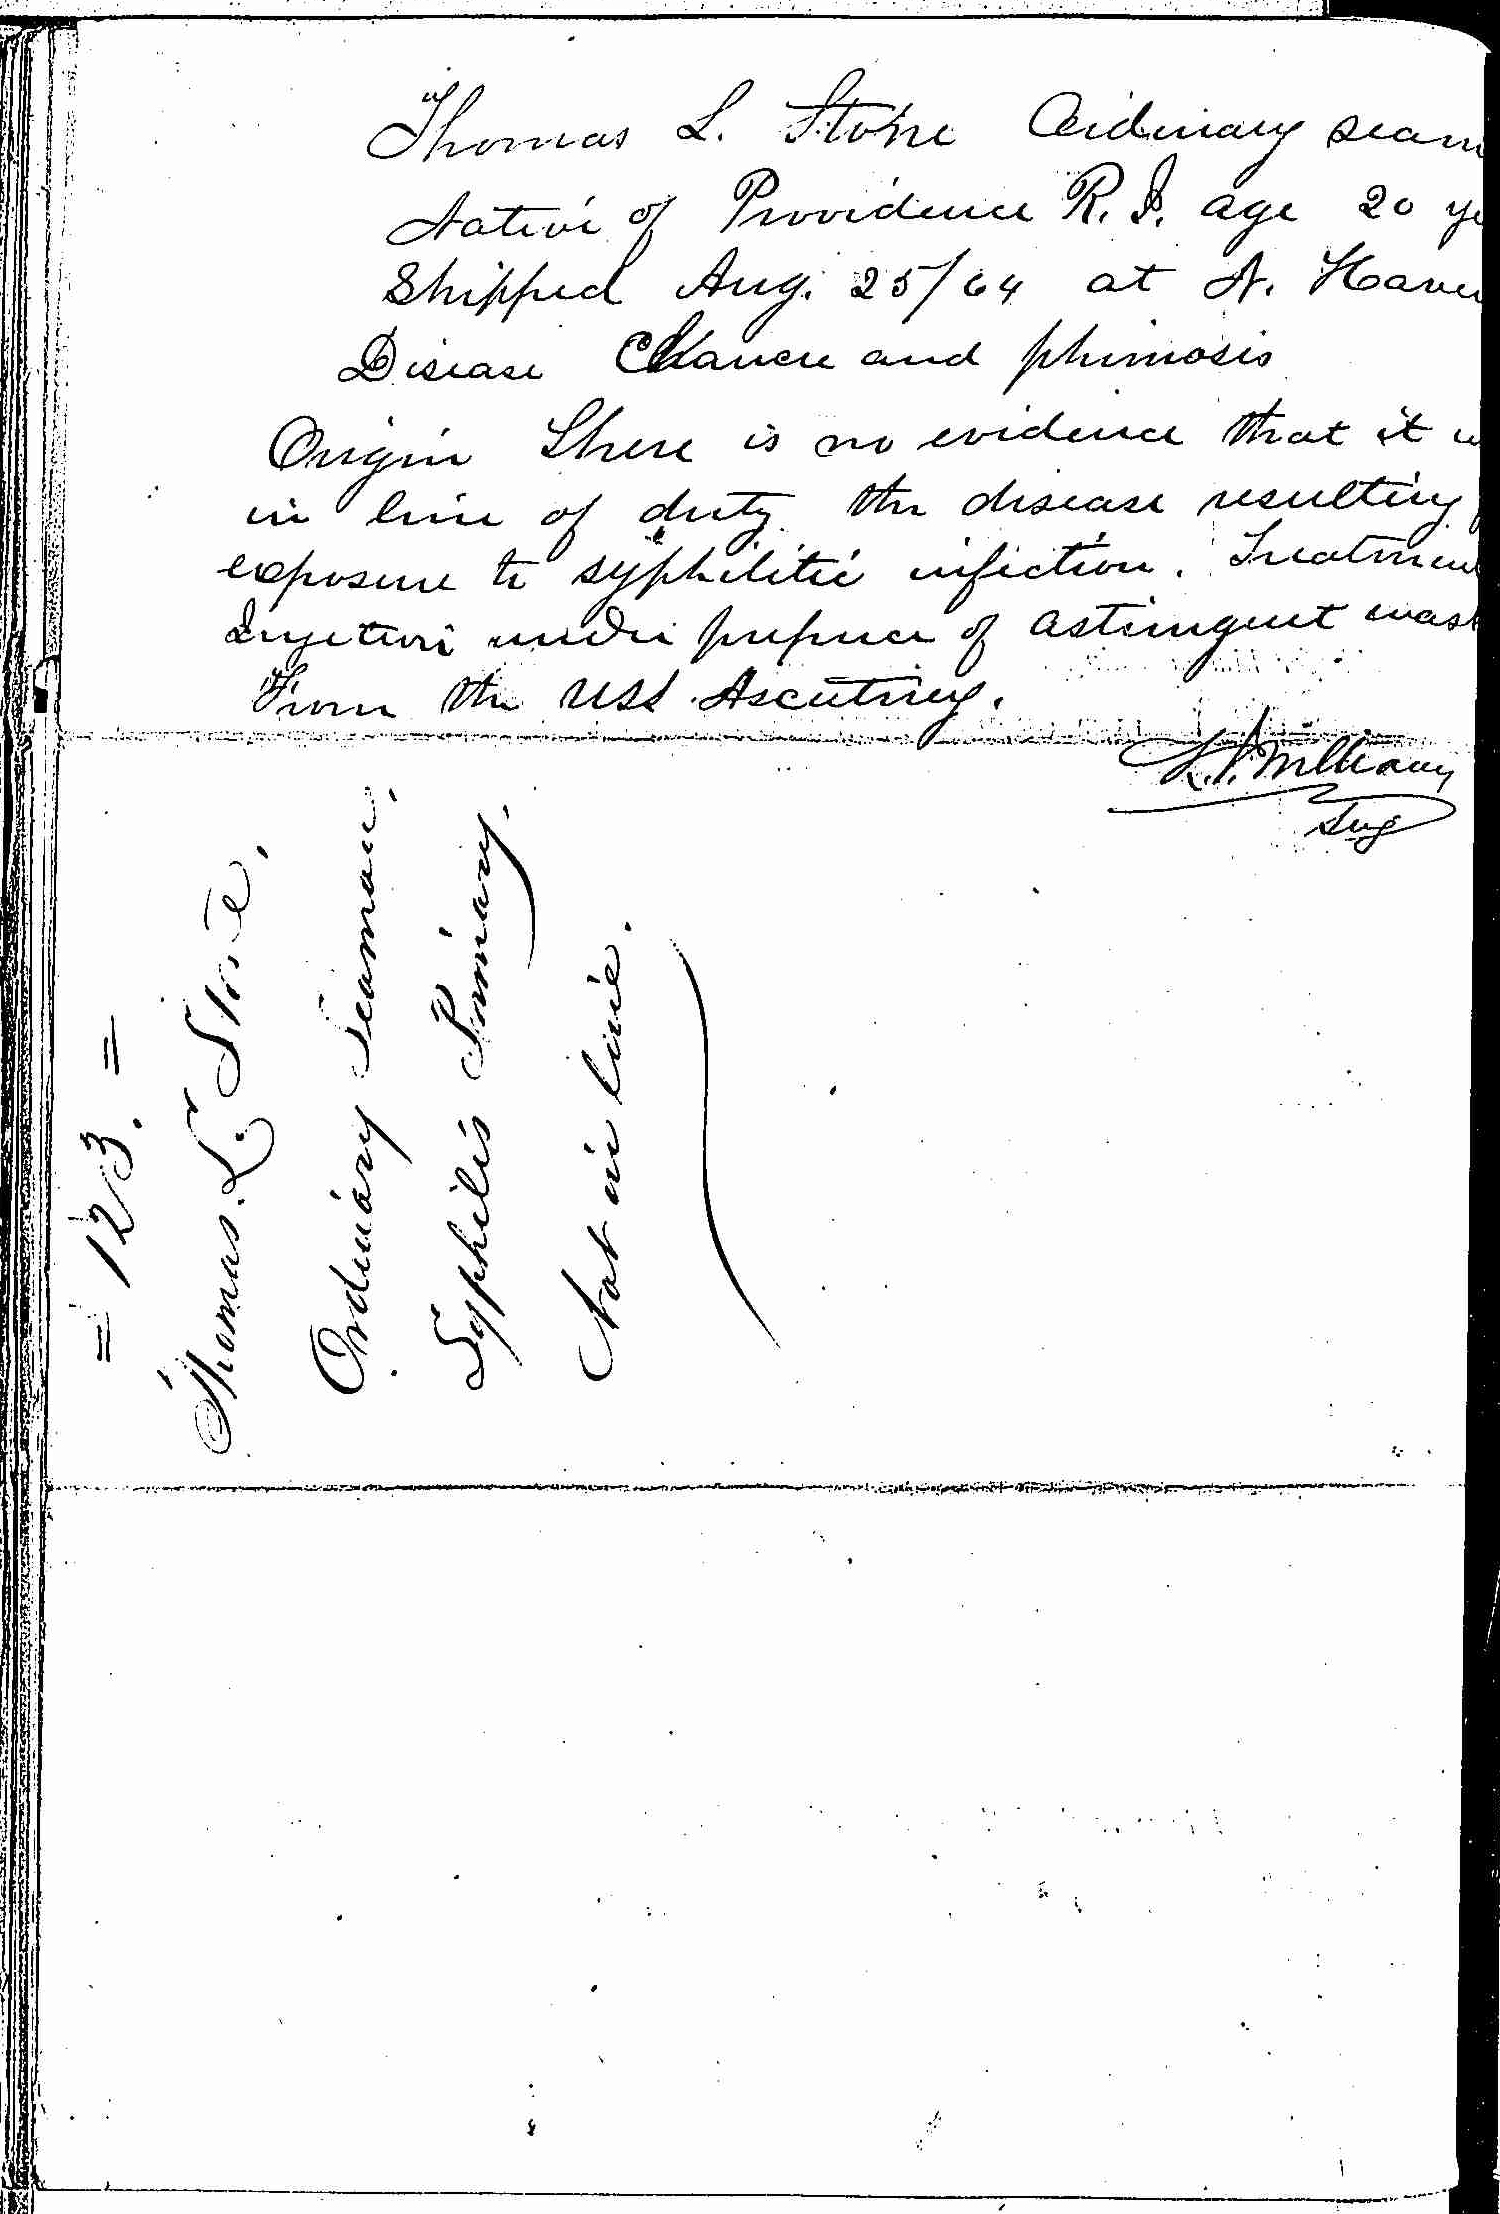 Thomas L. Stone Ordinary seam
Native of Providence R. I. age 20 ye
Shipped Aug. 25/64 at N. Haven
Disease Chancre and phimosis
Origin There is no evidence that it w
in line of duty the disease resulting
exposure to syphilitic infection. Treatment
Injection under prepuce of astingent wash
From the USS Ascutney.
Surg
= 123. =
Thomas. L. Stone,
Ordinary Seaman,
Syphilis Primary.
Not in line.